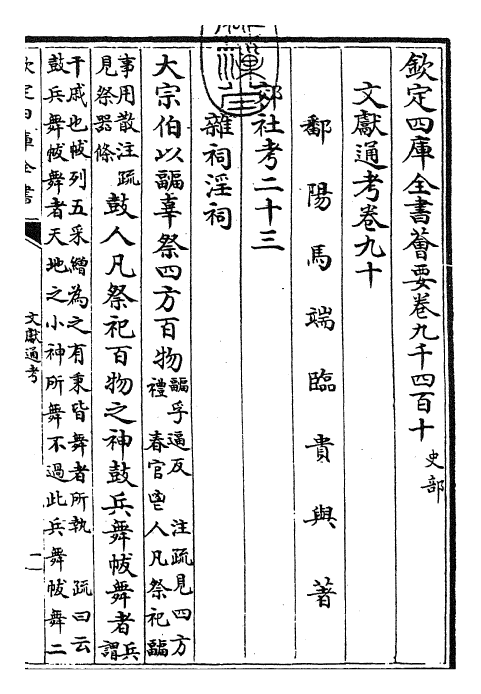 欽定四庫全書薈要卷九千四百十 史部
文獻通考卷九十
鄱陽馬端臨貴與著
郊社考二十三
雜祠淫祠
大宗伯以疈辜祭四方百物
疈孚逼反 注疏見四方
禮 春官鬯人凡祭祀疈
事用散注疏
見祭器條
鼓人凡祭祀百物之神鼓兵舞帗舞者
兵
謂
干戚也帗列五采繒為之有秉皆舞者所執 疏曰云
鼓兵舞帗舞者天地之小神所舞不過此兵舞帗舞二
欽定四庫全書
文獻通考
一